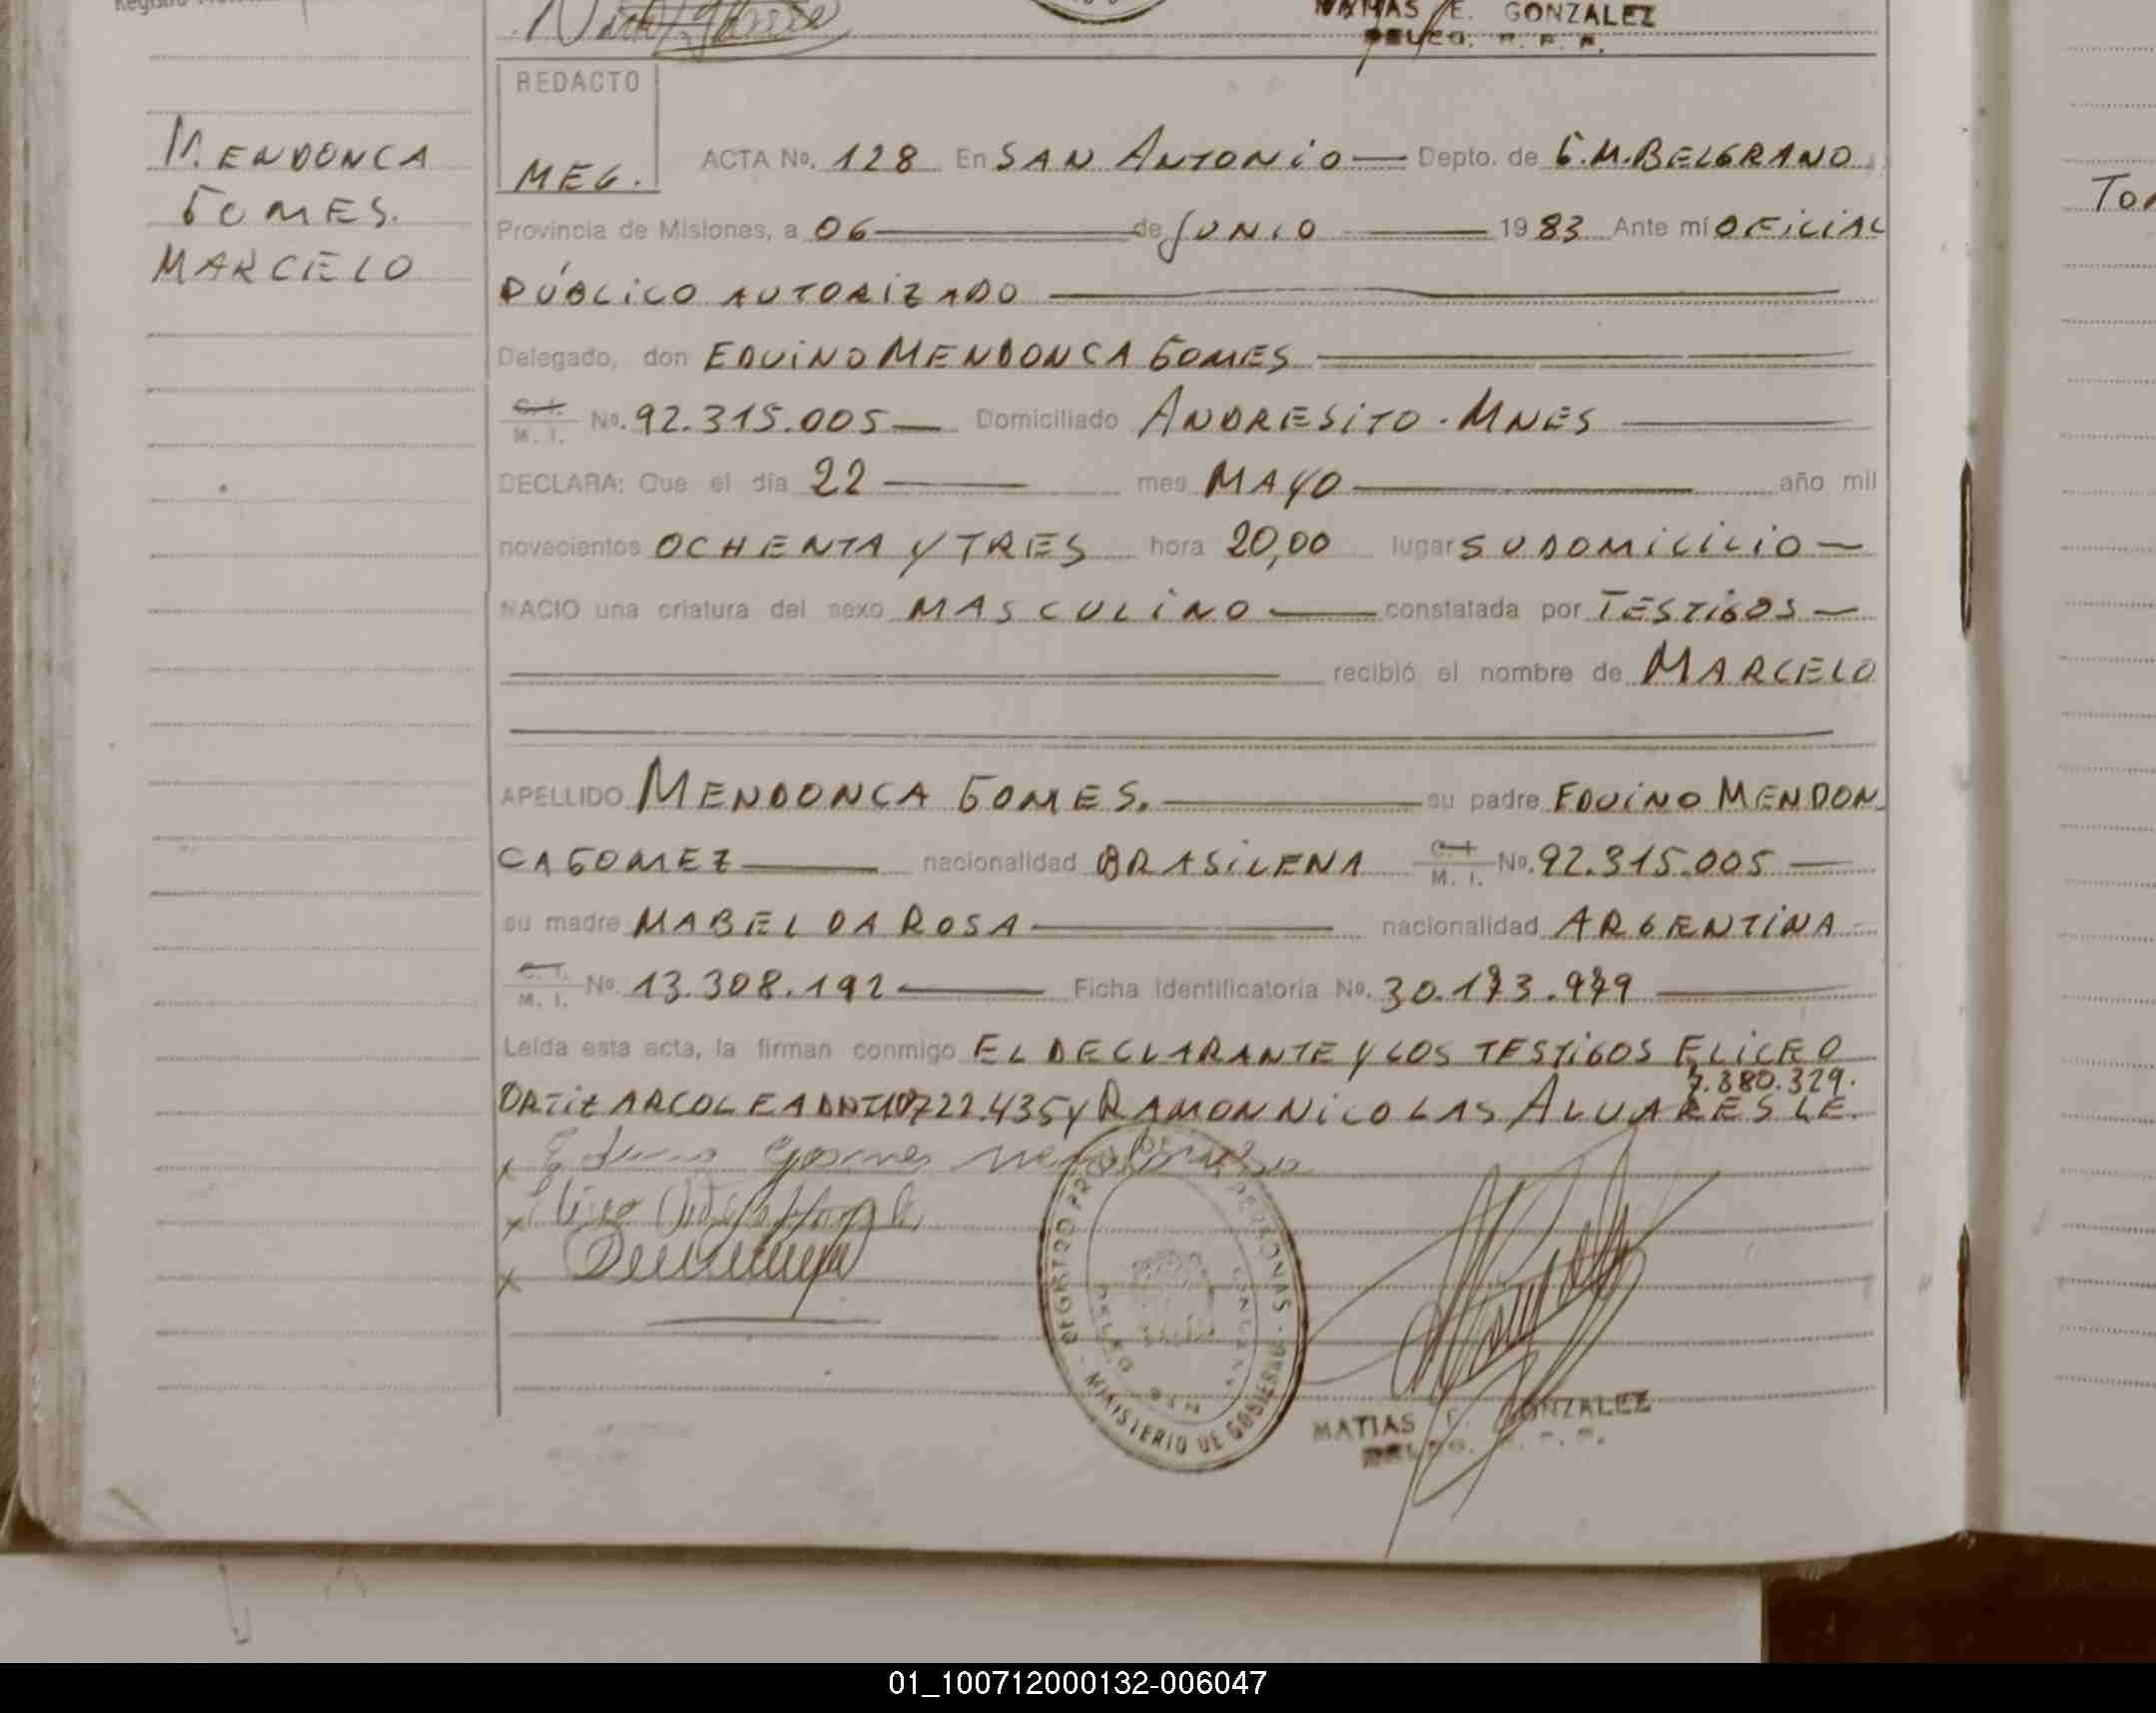 MATIAS E. GONZALEZ
DELEG. R. P. P.
REDACTO
MEG.
MENDONCA
GOMES.
MARCELO
ACTA No. 128 En SAN ANTONIO Depto. de G.M.BELGRANO
Provincia de Misiones, a 06 de JUNIO 1983 Ante mí OFICIAL
PÚBLICO AUTORIZADO
Delegado, don EDUINO MENDONCA GOMES
C. I. M. I. No. 92.315.005 Domiciliado ANDRESITO - MNES
DECLARA: Que el día 22 mes MAYO año mil
novecientos OCHENTA Y TRES hora 20,00 lugar SU DOMICILIO
NACIO una criatura del sexo MASCULINO constatada por TESTIGOS
recibió el nombre de MARCELO
APELLIDO MENDONCA GOMES. su padre EDUINO MENDON
CA GOMEZ nacionalidad BRASILENA C. I. M. I. No. 92.315.005
su madre MABEL DA ROSA nacionalidad ARGENTINA
C. I. M. I. No 13.308.192 Ficha Identificatoria No. 30.173.979
Leída esta acta, la firman conmigo EL DECLARANTE Y LOS TESTIGOS ELICEO
7.880.329.
ORTIZ ARCOLEA DNI 722.435 Y RAMON NICOLAS ALVARES LE.
REGISTRO PERSONAS
MINISTERIO DE GOBIERNO
MATIAS E. GONZALEZ
TO
01_100712000132-006047